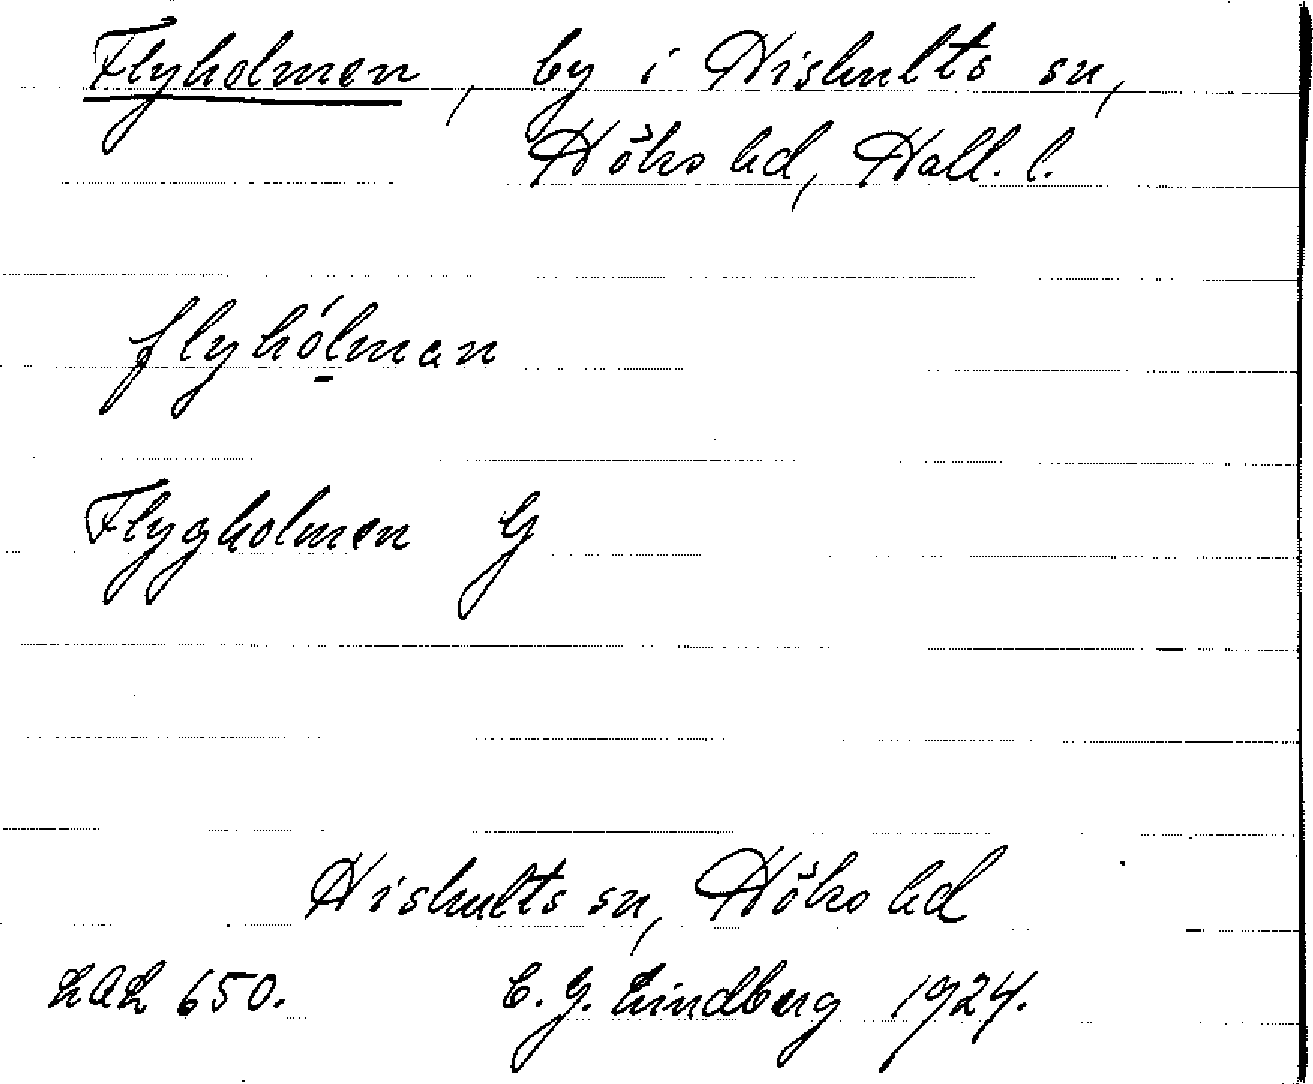 Flyholmen, by i Hishults sn,
Höks hd, Hall. l.
flyhólman
Flygholmen G
Hishults sn, Höks hd
LAL 650. C. G. Lindberg 1924.